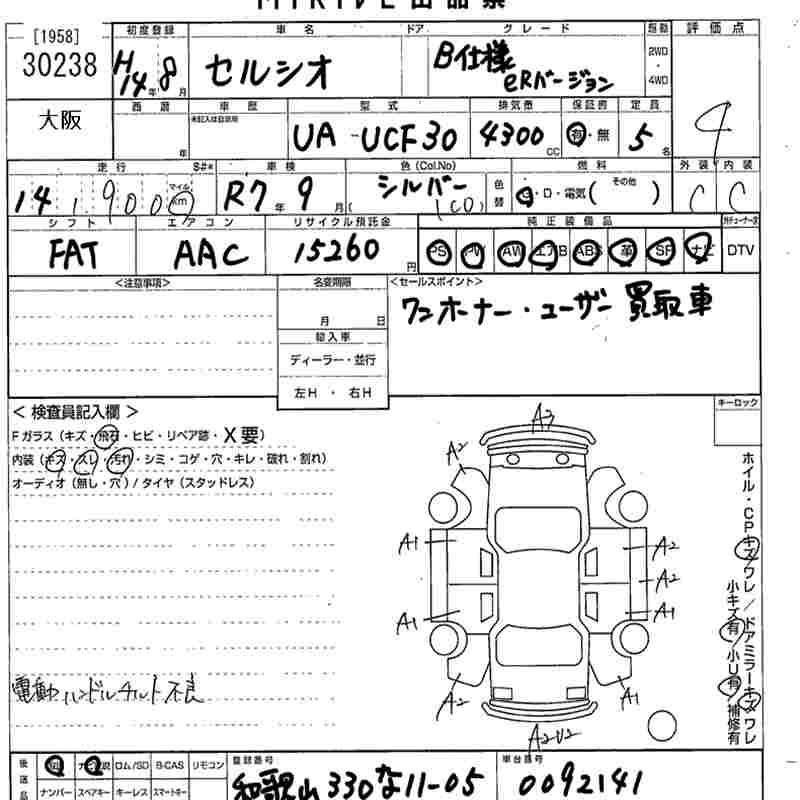 MIRIVE出品票
[1958] 初度登録 車名 ドア グレード 駆動 評価点
30238 H14年8月 セルシオ B仕様 eRバージョン 2WD・4WD 4
大阪 西暦 年 車歴 未記入は自家用 型式 UA-UCF30 排気量 4300 CC 保証書 有・無 定員 5名
走行 141,900 マイル km S#* 車検 R7年9月( 色(Col.No) シルバー (1C0) 色替 燃料 G・D・電気( その他 ) 外装 C 内装 C
シフト FAT エアコン AAC リサイクル預託金 15260円 純正装備品 PS PW AW エアB ABS 革 SR ナビ DTV
<注意事項> 名変期限 <セールスポイント>
月 日 ワンオーナー・ユーザー買取車
輸入車
ディーラー・並行
左H ・ 右H
<検査員記入欄> キーロック
Fガラス(キズ・飛石・ヒビ・リペア跡・X要)
内装(キズ・スレ・汚れ・シミ・コゲ・穴・キレ・破れ・割れ)
オーディオ(無し・穴)/タイヤ(スタッドレス)
A3
A2
A1 A2
A2
A1 A1
A2 A1
A2U2
ホイル・CPキズワレ/ドアミラーキズワレ
小キズ有・小U有/補修有
電動ハンドルチルト不良
後送品 ナビ 説 ロム/SD B-CAS リモコン 登録番号 車台番号
ナンバー スペアキー キーレス スマートキー 和歌山330な11-05 0092141